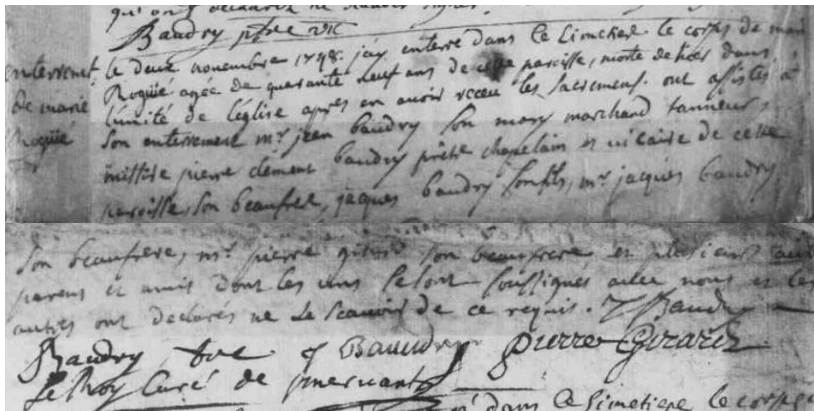 qu on
Baudry ptre vic
enterremet de marie Rogüe
le deux novembre 1748. jay enterré dans le Simetiere le corps de marie
Rogüe agée de quarante neuf ans de cette paroisse, morte de hier dans
l'unité de l'église après en avoir receu les Sacremens. ont assistés à
Son enterrement mr jean baudry Son mary marchand tanneur,
pierre clément baudry prêtre chapelain et vicaire de cette
paroisse, Son beaufrere, jaques baudry Son fils, mr jacques baudry
Son beaufrere, mr pierre girard Son beaufrere et plusieurs autres
parens et amis dont les uns Se sont Soussignés avec nous et les
autres ont declarés ne le Scavoir de ce requis. J Baudry
Baudry ptre J Baudry pierre Girard
Le Roy Curé de mervant
dans le Simetiere le corps